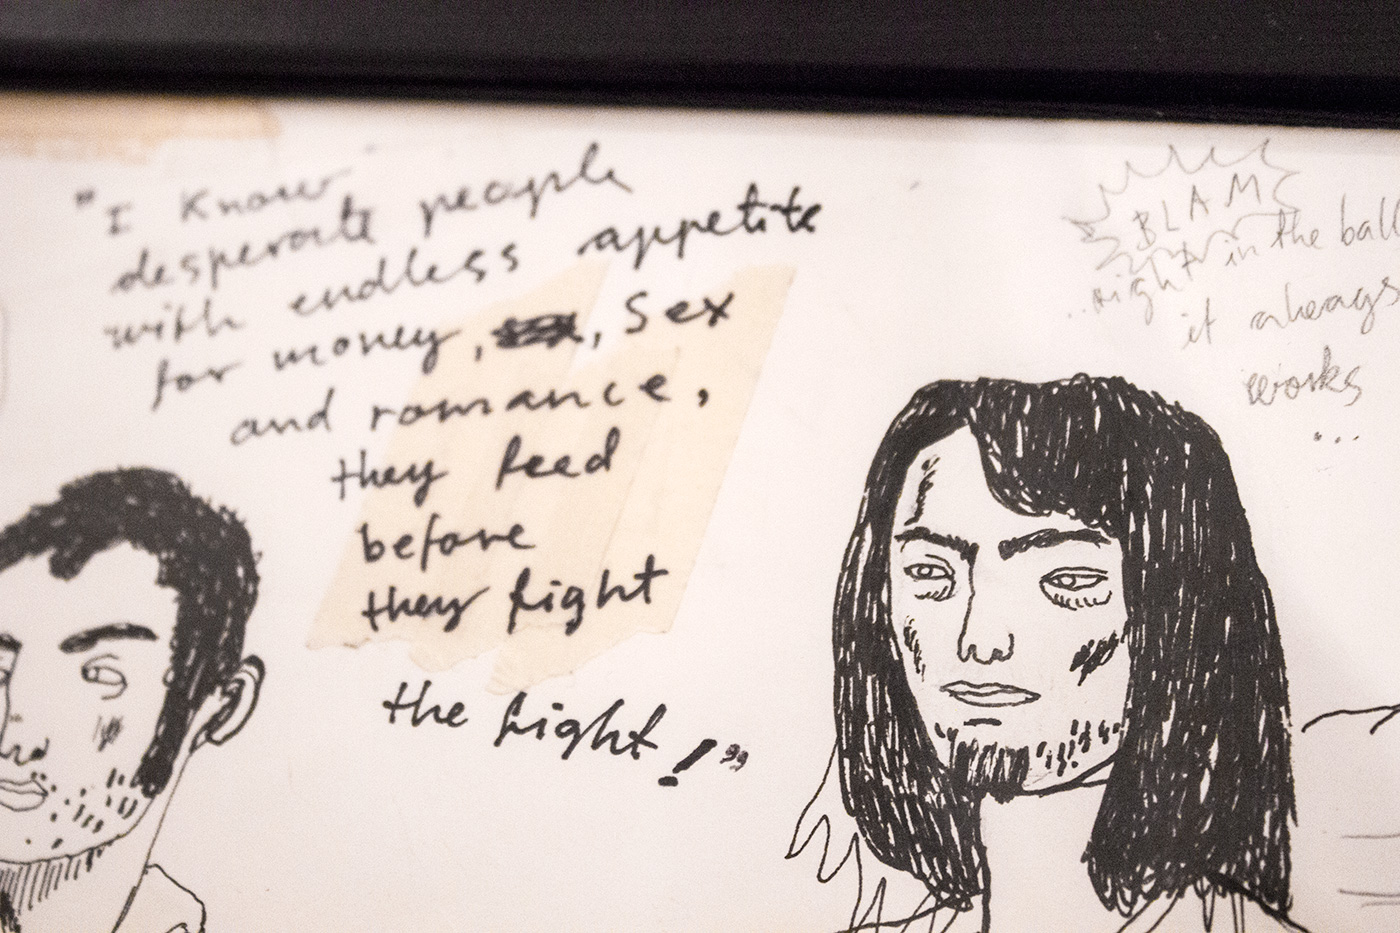 "I Know
desperate people
with endless appetite
for money, , Sex
and romance,
they feed
before
they fight
the fight!"
BLAM
..right in the ball
it always
works
...